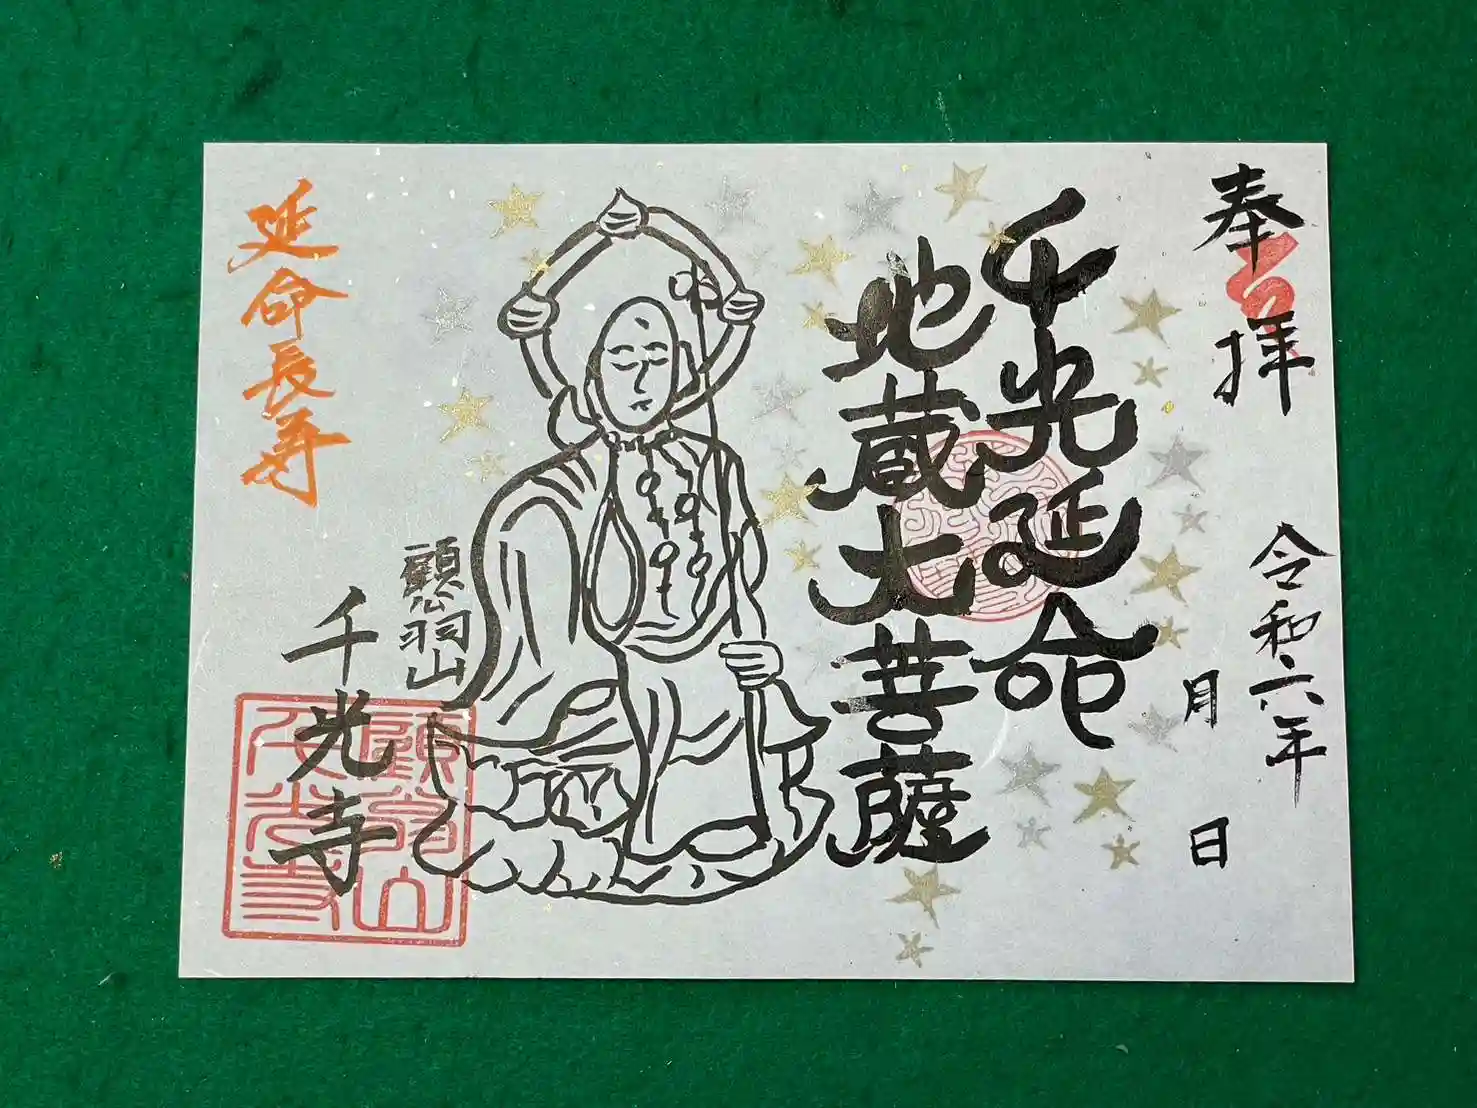 奉拝
令和六年
月
日
千光延命
地蔵大菩薩
顖羽山
千光寺
延命長寿